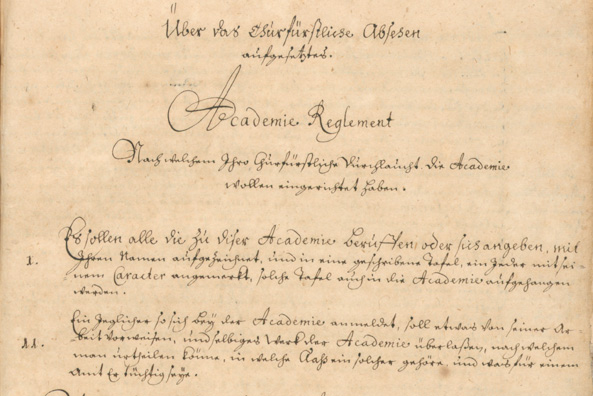 Über das Churfürstliche Absehen
aufgesetztes.
Academie Reglement
Nach welchem Ihro Churfürstliche Durchlaucht die Academie
wollen eingerichtet haben.
I. Es sollen alle die zu diser Academie beruffen, oder sich angeben, mit
Ihren Namen aufgezeichnet, und in eine geschribene Tafel, ein Jeder mit sei-
nem Caracter angemerkt, solche Tafel auch in die Academie aufgehangen
werden.
II. Ein Jeglicher so sich bey der Academie anmeldet, soll etwas von seiner Ar-
beit vorweisen, und selbiges Werk der Academie überlaßen, nach welchem
man urtheilen könne, in welche Claß ein solcher gehöre, und was für einem
Amt Er tüchtig seye.